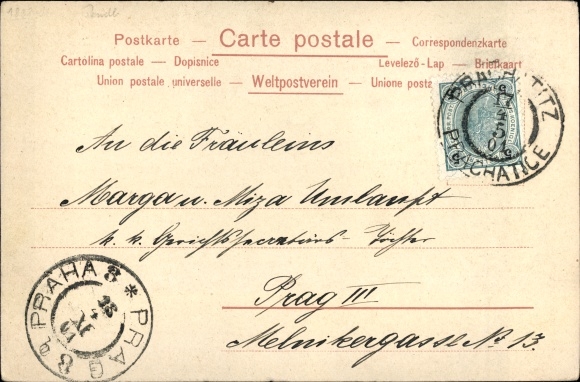 Postkarte – Carte postale – Correspondenzkarte
Cartolina postale – Dopisnice Levelező-Lap – Briefkaart
Union postale universelle – Weltpostverein – Unione posta
PRACHATITZ
PRACHATICE
An die Fräuleins
Marga u. Miza Umlauft
k. k. Gerichtssecretärs-Töchter
Prag III
Melnikergasse No 13.
PRAHA 8 * PRAG 8